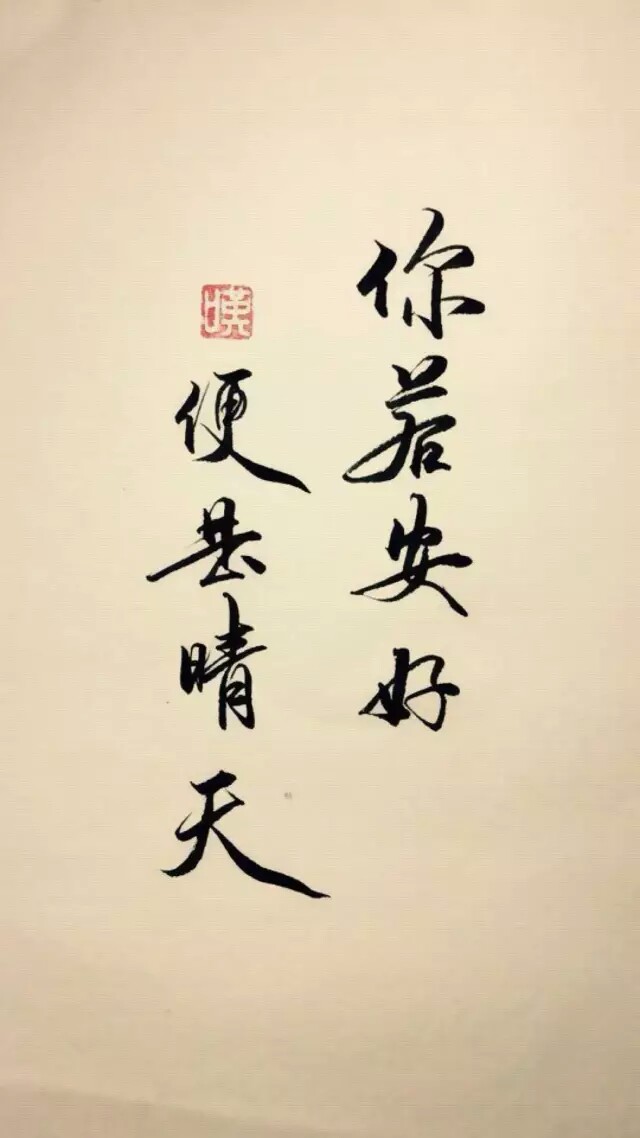 你若安好
便是晴天